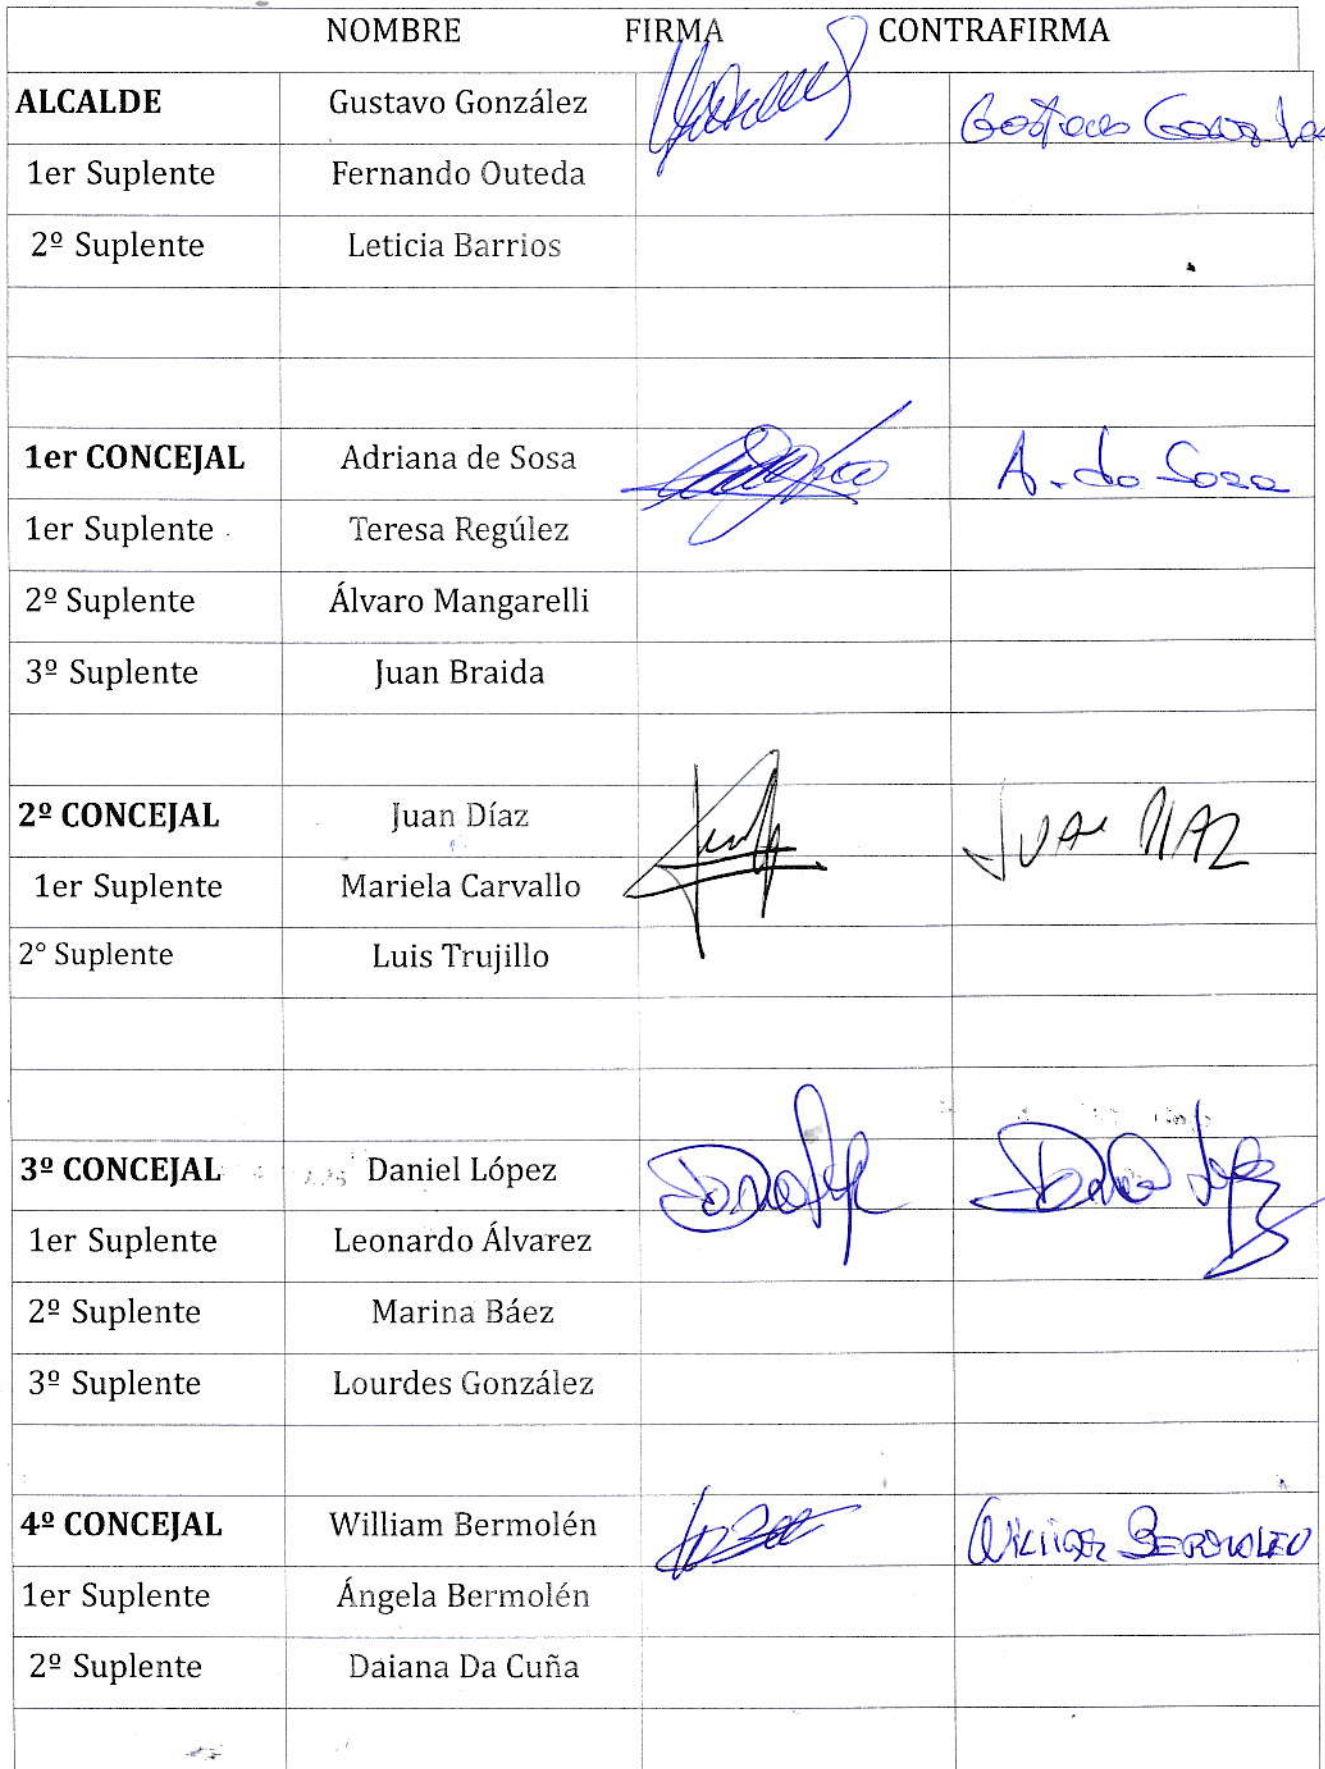 NOMBRE FIRMA CONTRAFIRMA
ALCALDE Gustavo González Gustavo Gonzalez
1er Suplente Fernando Outeda
2º Suplente Leticia Barrios
1er CONCEJAL Adriana de Sosa A. de Sosa
1er Suplente Teresa Regúlez
2º Suplente Álvaro Mangarelli
3º Suplente Juan Braida
2º CONCEJAL Juan Díaz JUAN DIAZ
1er Suplente Mariela Carvallo
2° Suplente Luis Trujillo
3º CONCEJAL Daniel López Daniel López
1er Suplente Leonardo Álvarez
2º Suplente Marina Báez
3º Suplente Lourdes González
4º CONCEJAL William Bermolén William BERMOLEN
1er Suplente Ángela Bermolén
2º Suplente Daiana Da Cuña